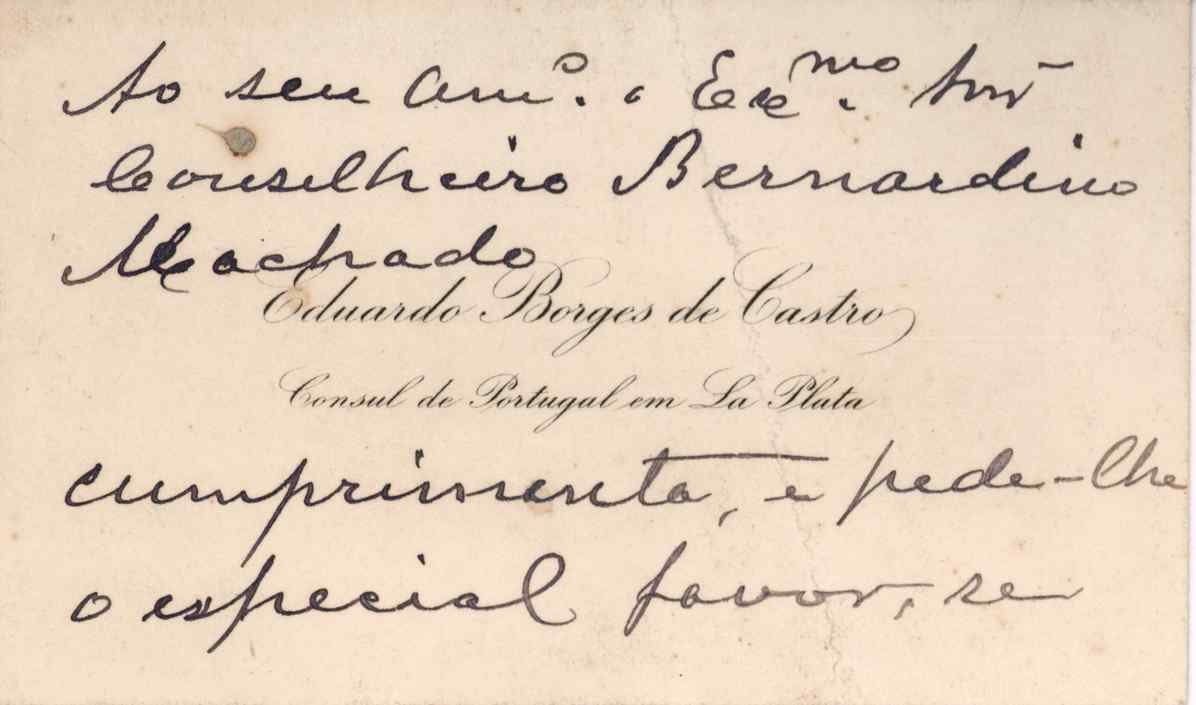 Ao seu Amº. o Exmo. Snr
Conselheiro Bernardino
Machado
Eduardo Borges de Castro
Consul de Portugal em La Plata
cumprimenta, e pede-lhe
o especial favor, se